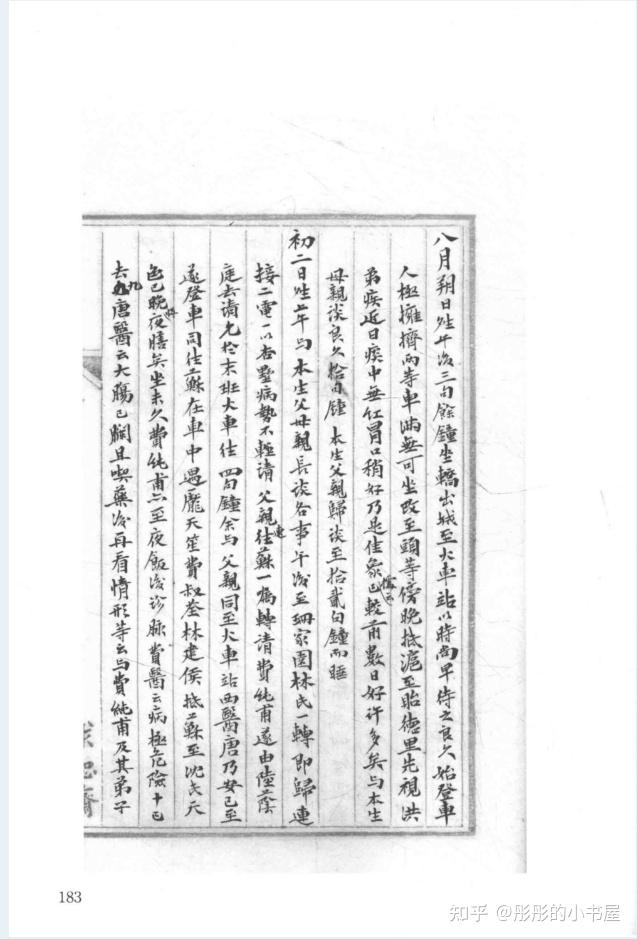 八月朔日晴午後三句餘鐘坐轎出城至火車站以時尚早待之良久始登車
人極擁擠向等車滿無可坐改至頭等傍晚抵滬至貽德里先視洪
弟疾近日痰中無紅胃口稍好乃是佳象已較前數日好許多矣与本生
母親談良久拾句鐘 本生父親歸談至拾貳句鐘而睡
初二日晴上午与本生父母親長談各事午後至珊家園林氏一轉即歸連
接二電一以杏墅病勢不輕請 父親速往蘇一為轉請費純甫遂由陸蔭
庭去請允於末班火車往 四句鐘余与父親同至火車站西醫唐乃安已至
遂登車同往蘇在車中遇龐天笙費叔荃林建侯抵蘇至沈氏天
已晚夜膳矣坐未久費純甫亦至夜飯後診脉費醫云病極危險十已
去九唐醫云大腸已爛且喫藥後再看情形等云与費純甫及其弟子
183
知乎 @彤彤的小书屋